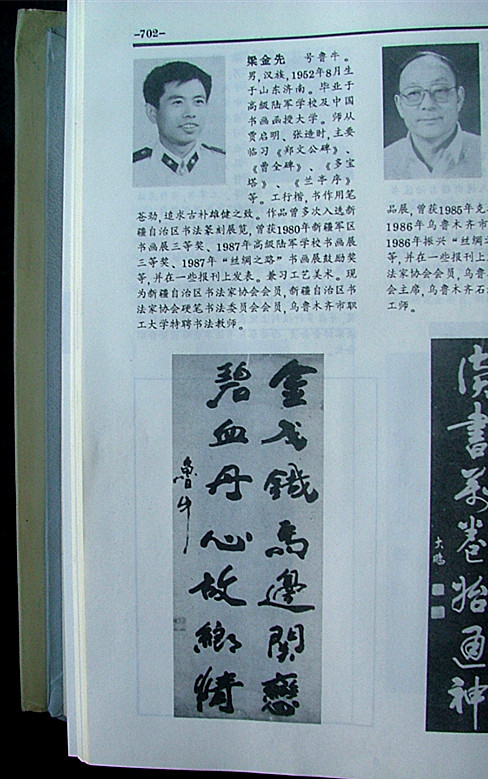 -702-
梁金先 号鲁牛。
男,汉族,1952年8月生
于山东济南。毕业于
高级陆军学校及中国
书画函授大学。师从
贾启明、张造时,主要
临习《郑文公碑》、
《曹全碑》、《多宝
塔》、《兰亭序》
等。工行楷,书作用笔
苍劲,追求古朴雄健之致。作品曾多次入选新
疆自治区书法篆刻展览,曾获1980年新疆军区
书画展三等奖、1987年高级陆军学校书画展
三等奖、1987年“丝绸之路”书画展鼓励奖
等,并在一些报刊上发表。兼习工艺美术。现
为新疆自治区书法家协会会员,新疆自治区书
法家协会硬笔书法委员会会员,乌鲁木齐市职
工大学特聘书法教师。
金戈铁马边关恋
碧血丹心故乡情
鲁牛
品展,曾获1985年克
1986年乌鲁木齐市
1986年振兴“丝绸之
等,并在一些报刊上
法家协会会员,乌鲁
会主席,乌鲁木齐石
工师。
读书万卷始通神
大鹏